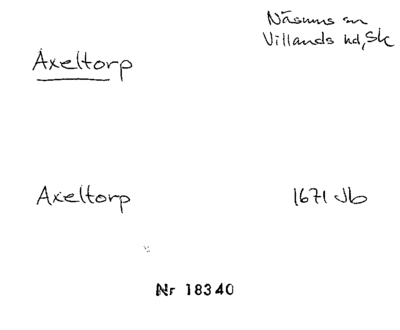 Näsums sn
Villands hd, Sk
Axeltorp
Axeltorp 1671 Jb
Nr 18340